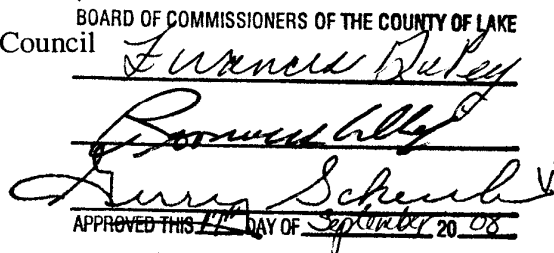 BOARD OF COMMISSIONERS OF THE COUNTY OF LAKE
Council
Frances DuPey
Gerry Scheub
APPROVED THIS 17th DAY OF September 20 08